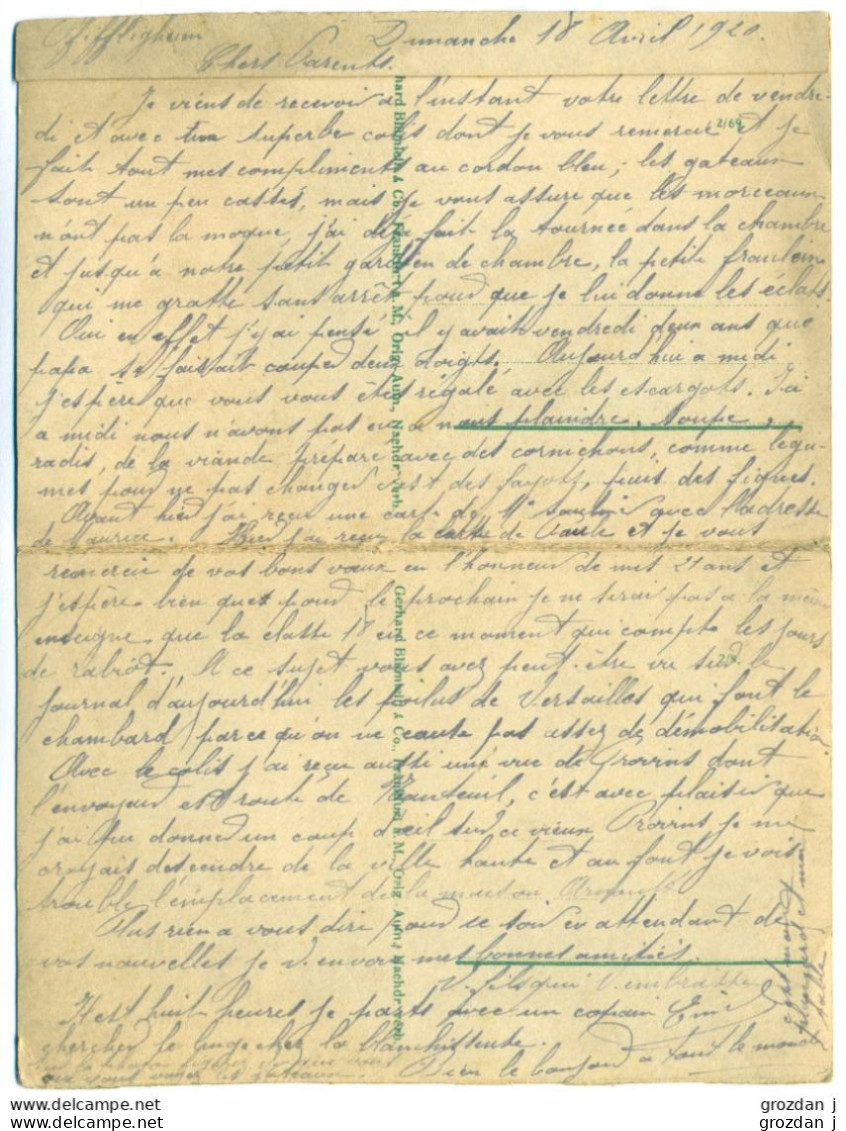 Pfiffligheim Dimanche 18 Avril 1920.
Chers Parents.
Je viens de recevoir a l'instant votre lettre de vendre-
di et avec un superbe colis dont je vous remercie et je
fait tout mes compliments au cordon bleu; les gateaux
sont un peu cassés, mais je vous assure que les morceaux
n'ont pas la moque, j'ai déja fait la tournée dans la chambre
et jusqu'a notre petit gardien de chambre, la petite fraulein
qui me gratte sans arrêt pour que je lui donne les éclats.
Oui en effet j'y ai pensé il y avait vendredi deux ans que
papa se faisait couper deux doigts. Aujourd'hui a midi
j'espère que vous vous êtes régalé avec les escargots. Ici
a midi nous n'avons pas eu a nous plaindre, soupe,
radis, de la viande préparé avec des cornichons, comme légu-
mes pour ne pas changer c'est des fayots, puis des figues.
Avant hier j'ai reçu une carte de avec l'adresse
de Maurice. Hier j'ai reçu la carte de Paule et je vous
remercie de vos bons vœux en l'honneur de mes 21 ans et
j'espère bien que pour le prochain je ne serai pas a la même
enseigne que la classe 18 en ce moment qui compte les jours
de rabiot. A ce sujet vous avez peut-être vu sur le
journal d'aujourd'hui les poilus de Versailles qui font le
chambard parce qu'on ne cause pas assez de démobilisation
Avec le colis j'ai reçu aussi une vue de Provins dont
l'envoyeur est route de Nanteuil, c'est avec plaisir que
j'ai pu donné un coup d'œil sur ce vieux Provins je me
croyais descendre de la ville haute et au font je vois
trouble l'emplacement de la maison
Plus rien a vous dire pour ce soir en attendant de
vos nouvelles je v. envoie mes bonnes amitiés.
V. fils qui V. embrasse
Il est huit heures je parts avec un copain
chercher le linge chez la blanchisseuse.
Bien le bonjour a tout le monde
que vous voyez les gateaux
c'est moi
et moi
table
Gerhard Blümlein & Co., Frankfurt a. M., Orig. Aufn., Nachdr. verb.
2/69
Gerhard Blümlein & Co., Frankfurt a. M., Orig. Aufn., Nachdr. verb.
grozdan j
grozdan j